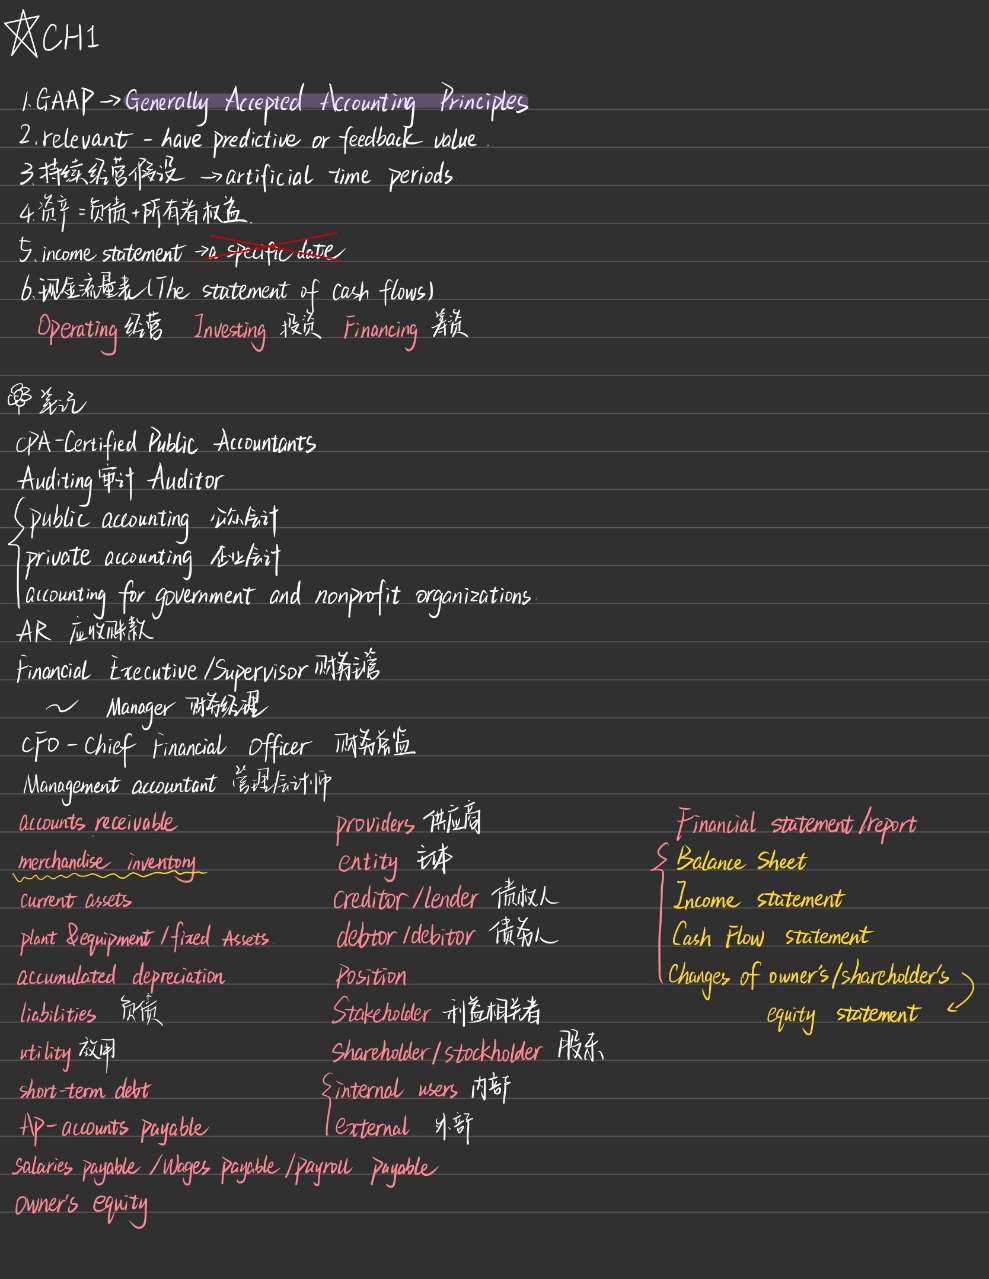 ☆CH1
1.GAAP→Generally Accepted Accounting Principles
2.relevant - have predictive or feedback value.
3.持续经营假设 →artificial time periods
4.资产=负债+所有者权益.
5.income statement →a specific date
6.现金流量表(The statement of cash flows)
Operating 经营 Investing 投资 Financing 筹资
笔记
CPA-Certified Public Accountants
Auditing审计 Auditor
public accounting 公众会计
private accounting 企业会计
accounting for government and nonprofit organizations.
AR 应收账款
Financial Executive/Supervisor财务主管
~ Manager 财务经理
CFO-Chief Financial Officer 财务总监
Management accountant 管理会计师
accounts receivable
merchandise inventory
current assets
plant &equipment/fixed Assets
accumulated depreciation
liabilities 负债
utility 效用
short-term debt
AP-accounts payable
salaries payable/Wages payable/payroll payable
owner's equity
providers 供应商
entity 主体
creditor/lender 债权人
debtor/debitor 债务人
Position
Stakeholder 利益相关者
shareholder/stockholder 股东
internal users 内部
external 外部
Financial statement/report
Balance Sheet
Income statement
Cash Flow statement
Changes of owner's/shareholder's
equity statement